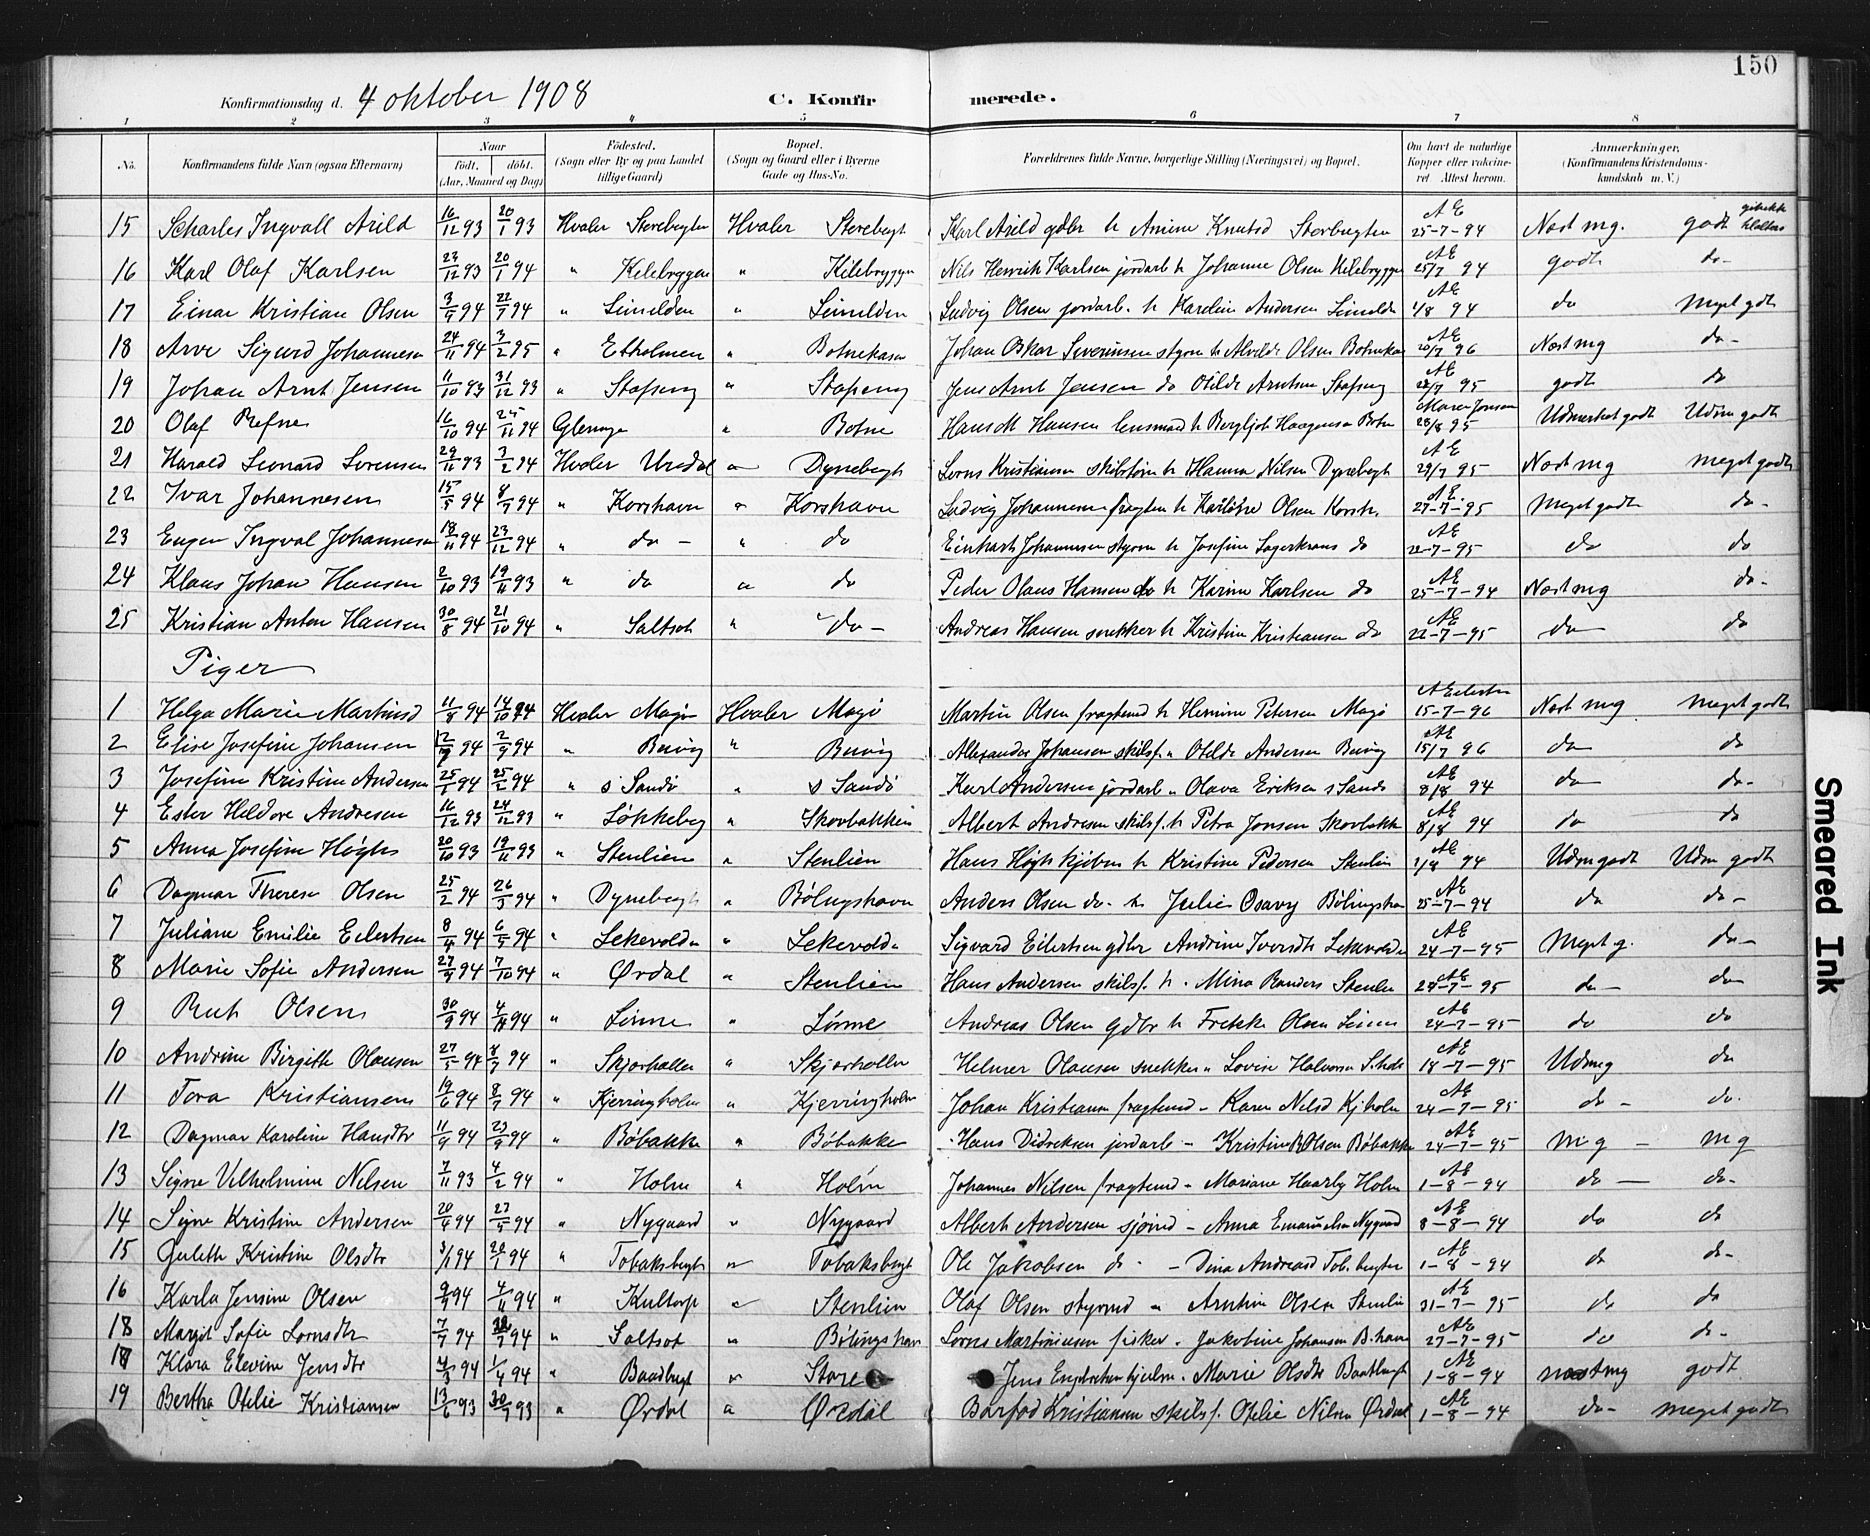 150
Konfirmationsdag d. 4 oktober 1908 C. Konfirmerede.
1 2 3 4 5 6 7 8
No. Konfirmandens fulde Navn (ogsaa Efternavn) Naar födt. döbt. (Aar, Maaned og Dag) Födested. (Sogn eller By og paa Landet tillige Gaard) Bopæl. (Sogn og Gaard eller i Byerne Gade og Hus-No. Forældrenes fulde Navne, borgerlige Stilling (Næringsvei) og Bopæl. Om havt de naturlige Kopper eller vaccineret Attest herom. Anmærkninger, (Konfirmandens Kristendomskundskab m. V.)
15 Scharles Ingvall Arild 16/12 93 20/1 93 Hvaler Storebugten Hvaler Storebugt Karl Arild gdbr h Amine Knutsd Storbugten AE 25-7-94 Næst mg. godt
16 Karl Olaf Karlsen 23/12 93 20/1 94 " Kilebryggen " Kilebryggen Nils Henrik Karlsen jordarb h Johanne Olsen Kilebrygge AE 25/7 94 godt do-
17 Einar Kristian Olsen 3/7 94 22/7 94 " " Ludvig Olsen jordarb. h Karelin Andersen AE 4/8 94 do Meget godt
18 Arve Sigurd Johannesen 24/11 94 3/2 95 " Etholmen " Botnekasa Johan Oskar Severinsen styrm h Alvilde Olsen Botnekas AE 20/7 96 Næst mg do-
19 Johan Arnt Jensen 11/10 93 31/12 93 " Stafseng " Stafseng Jens Arnt Jensen do Otilde Arntsen Stafseng AE 22/7 95 godt do
20 Olaf Refne 16/10 94 25/11 94 Glemmge " Botne Hans M Hansen lensmand h Bergljot Haagensen Botn Maren Jonsen 28/8 95 Udmerket godt Udm godt
21 Harald Leonard Lorensen 29/11 93 3/2 94 Hvaler Urdal " Dynebugt Lorns Kristiansen skibstøm h Hanna Nilsen Dynebugt AE 29/7 95 Næst mg meget godt
22 Ivar Johannesen 15/5 94 8/7 94 " Korshavn " Korshavn Ludvig Johannesen fragtem h Karlotte Olsen Korsh. AE. 27-7-95 Meget godt do-
23 Eugen Ingval Johannesen 18/11 94 23/12 94 " do - " do Einhart Johannesen styrm h Josefine Lagerkrans do AE 22-7-95 do do
24 Klaus Johan Hansen 2/10 93 19/11 93 " do " do Peder Olaus Hansen do h Karine Karlsen do AE 25-7-94 Næst mg do-
25 Kristian Anton Hansen 30/8 94 21/10 94 " Saltsot " do- Andreas Hansen snekker h Kristine Kristiansen do AE 22-7-95 do do
Piger
1 Helga Marie Martinsd 11/8 94 14/10 94 Hvaler Magø Hvaler Magø Martin Olsen fragtemd h Hermine Petersen Magø A Eilertsn 15-7-96 Næst mg meget godt
2 Elise Josefine Johansen 12/7 94 2/9 94 " Buvig " Buvig Alexander Johansen skilsf. " Otilde Andersen Buvig AE 15/7 96 do do
3 Josefine Kristine Andersen 25/1 94 25/2 94 " s Sandø " s Sandø Karl Andersen jordarb " Olava Eriksen s Sandø AE 8/8 94 do do-
4 Ester Heldore Andresen 16/12 93 24/12 93 " Løkkeberg " Skovbakken Albert Andresen skilsf. h Petra Jonsen Skovbakk AE 8/8 94 do do
5 Anna Josefine Høgh 20/10 93 19/11 93 " Stenlien " Stenlien Hans Høgh kjøbm h Kristine Pedersen Stenlin AE 1/8 94 Udm godt Udm godt
6 Dagmar Therese Olsen 25/2 94 26/3 94 " Dynebugt " Bølingshavn Anders Olsen do- h Julie Osavg Bølingsha AE 25-7-94 do do-
7 Juliane Emilie Eilertsen 8/4 94 6/5 94 " Lekevolde " Lekevolde Sigvard Eilertsen gdbr Andrine Iversdt Lekevolde AE 24-7-95 Meget g. do-
8 Marie Sofie Andersen 27/9 94 7/10 94 " Ørdal " Stenlien Hans Andersen skilsf. h. Mina Randers Stenli AE 24-7-95 do- do
9 Rut Olsen 30/9 94 4/11 94 " Lønne " Lønne Andreas Olsen Gdbr h Frekke Olsen AE 24-7-95 do do
10 Andrine Birgitte Olausen 27/5 94 8/7 94 " Skjærhallen " Skjærhallen Helmer Olausen snekker " Lovise Halvorsen S.hall AE 18-7-95 Udmg do
11 Tora Kristiansen 19/6 94 8/7 94 " Kjerringholm " Kjerringholm Johan Kristiansen fragtemd - Karen Nelsd Kjholm AE 24-7-95 do - do.
12 Dagmar Karoline Hansdtr 11/9 94 23/9 94 " Bøbakke " Bøbakke Hans Didreksen jordarb - Kristine B Olsen Bøbakke AE 24-7-95 m g - m g
13 Signe Vilhelmine Nelsen 7/11 93 4/2 94 " Holm " Holm Johannes Nilsen fragtemd - Mariane Haarby Holm AE 1-8-94 do - do-
14 Signe Kristine Andersen 20/4 94 27/5 94 " Nygaard " Nygaard Albert Andersen sjømd - Anna Emanuelsen Nygaard AE 8-8-94 do do
15 Gulette Kristine Olsdtr 3/1 94 20/1 94 " Tobaksbugt " Tobaksbugt Ole Jakobsen do - Dina Andreasd Tob.bugten AE 1-8-94 do do-
16 Karla Jensine Olsen 9/9 94 4/11 94 " Kultorp " Stenlien Olaf Olsen styrmd " Arntine Olsen Stenlie AE 31-7-95 do do
18 Margit Sofie Lornsdtr 7/7 94 94 " Saltsot " Bølingshavn Lorns Martiniusen fisker. Jakobine Johansen B.havn AE 27-7-95 do do-
17 Klara Elevine Jensdtr 4/3 94 1/4 94 " Baadbugt " Store Jens Engebretsen Marie Olsdtr Baatbugt AE 1-8-94 næst mg godt
19 Bertha Otelie Kristiansen 13/6 93 30/7 93 " Ørdal " Ørdal Barfod Kristiansen skilsf. Otelie Nilsen Ørdal AE 1-8-94 do- meget godt
Smeared Ink